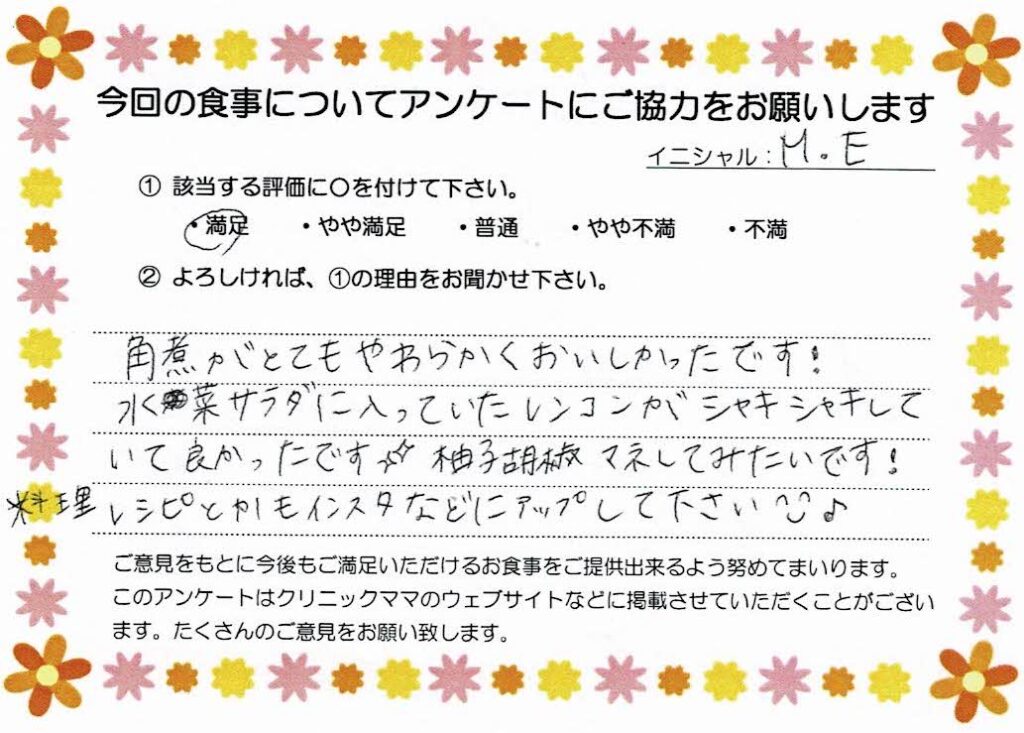 今回の食事についてアンケートにご協力をお願いします
イニシャル：M.E
① 該当する評価に○を付けて下さい。
・満足 ・やや満足 ・普通 ・やや不満 ・不満
② よろしければ、①の理由をお聞かせ下さい。
角煮がとてもやわらかくおいしかったです！
水菜サラダに入っていたレンコンがシャキシャキして
いて良かったです☆☆ 柚子胡椒マネしてみたいです！
料理レシピとかもインスタなどにアップして下さい♪
ご意見をもとに今後もご満足いただけるお食事をご提供出来るよう努めてまいります。
このアンケートはクリニックママのウェブサイトなどに掲載させていただくことがござい
ます。たくさんのご意見をお願い致します。